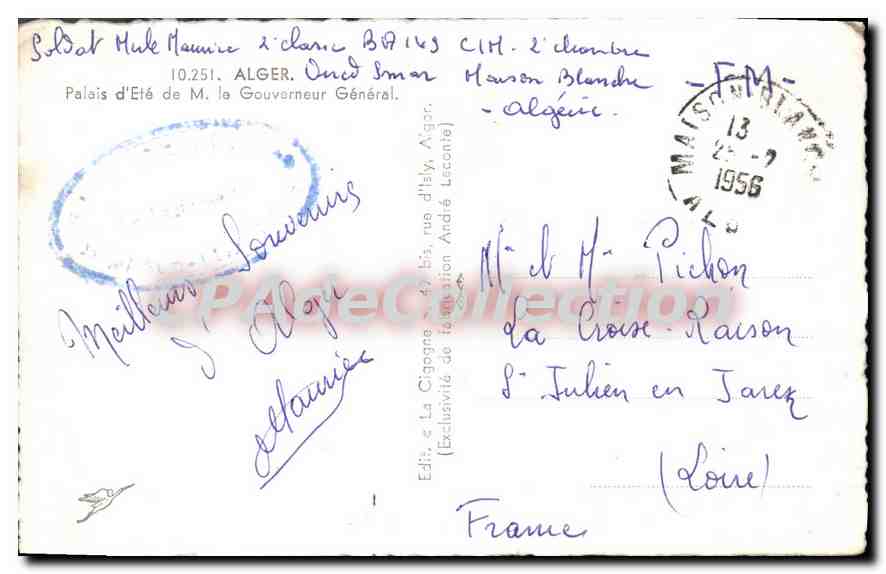 Soldat Mule Maurice 2e classe BA 149 CIM. 2e chambre
10.251. ALGER. Oued Smar Maison Blanche
Palais d'Eté de M. le Gouverneur Général.
- Algérie.
- F.M -
MAISON BLANCHE
13
1956
ALG
Meilleurs Souvenirs
d'Alger
Maurice
Edit. « La Cigogne », 47 bis, rue d'Isly, Alger.
(Exclusivité de fabrication André Leconte)
CPAdeCollection
Mr et Me Pichon
La Croise-Raison
St Julien en Jarez
(Loire)
France